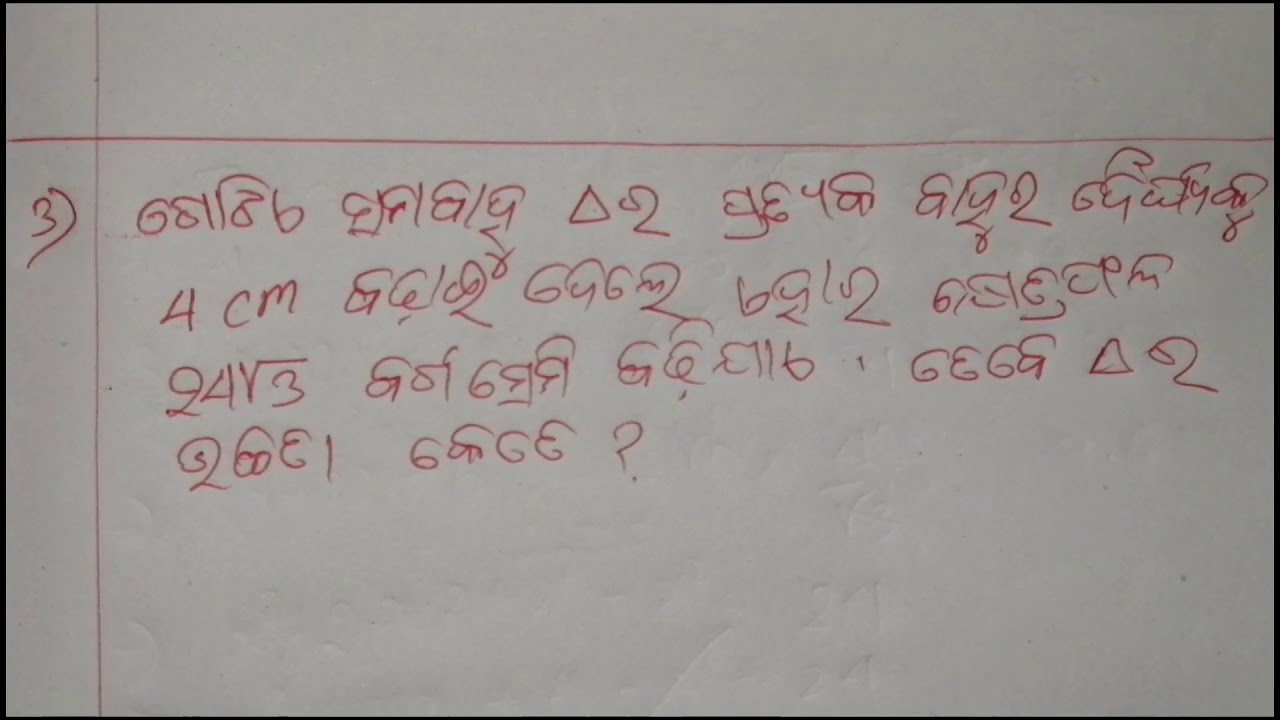 ୩) ଗୋଟିଏ ସମବାହୁ Δର ପ୍ରତ୍ୟେକ ବାହୁର ଦୈର୍ଘ୍ୟକୁ
4 cm ବଢ଼ାଇ ଦେଲେ ଏହାର କ୍ଷେତ୍ରଫଳ
୨4√3 ବର୍ଗ ସେମି ବଢ଼ିଯାଏ । ତେବେ Δ ର
ଉଚ୍ଚତା କେତେ ?